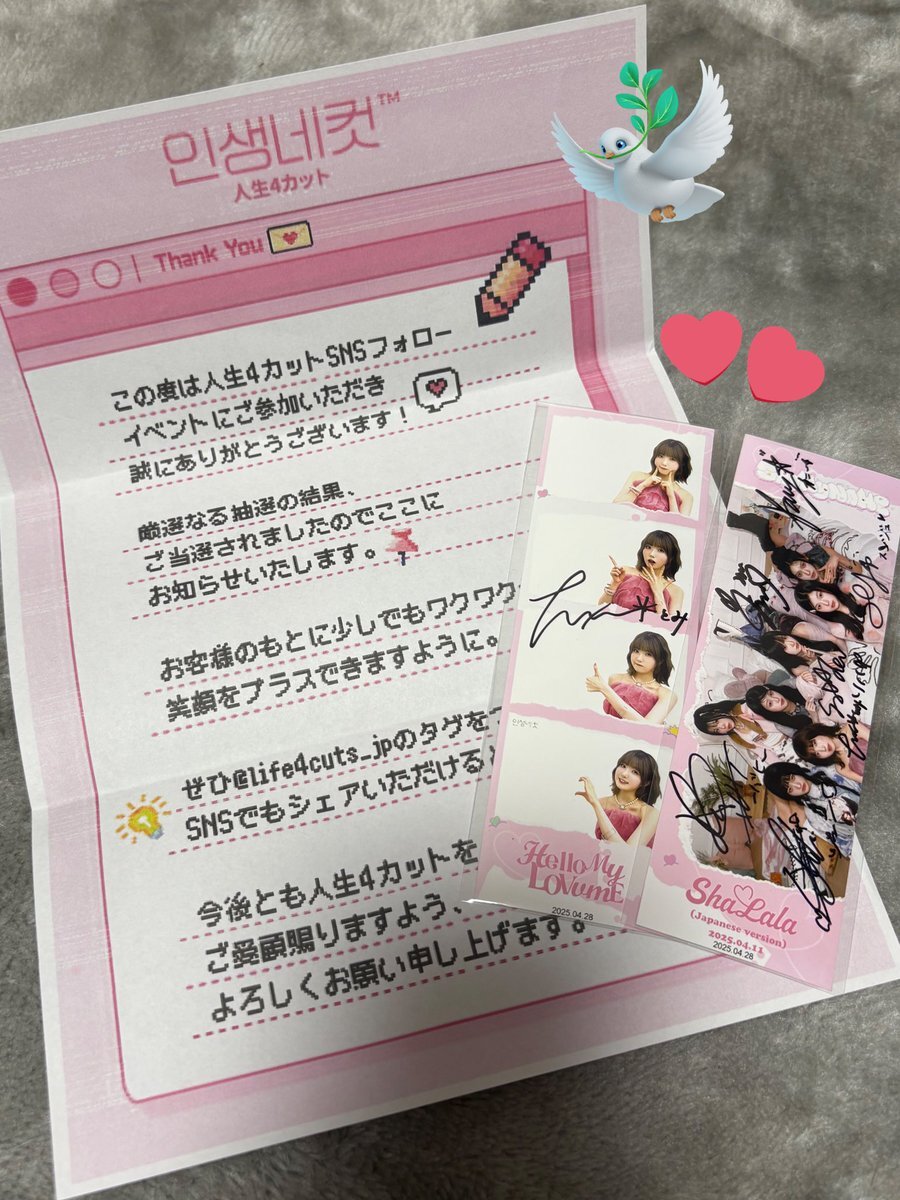 인생네컷™
人生4カット
Thank You
この度は人生4カットSNSフォロー
イベントにご参加いただき
誠にありがとうございます！
厳選なる抽選の結果、
ご当選されましたのでここに
お知らせいたします。
お客様のもとに少しでもワクワク
笑顔をプラスできますように。
ぜひ@life4cuts_jpのタグを
SNSでもシェアいただけると
今後とも人生4カットを
ご愛顧賜りますよう、
よろしくお願い申し上げます。
とみ
인생네컷
Hello My
LOVumE
2025.04.28
ShaLala
(Japanese version)
2025.04.11
2025.04.28